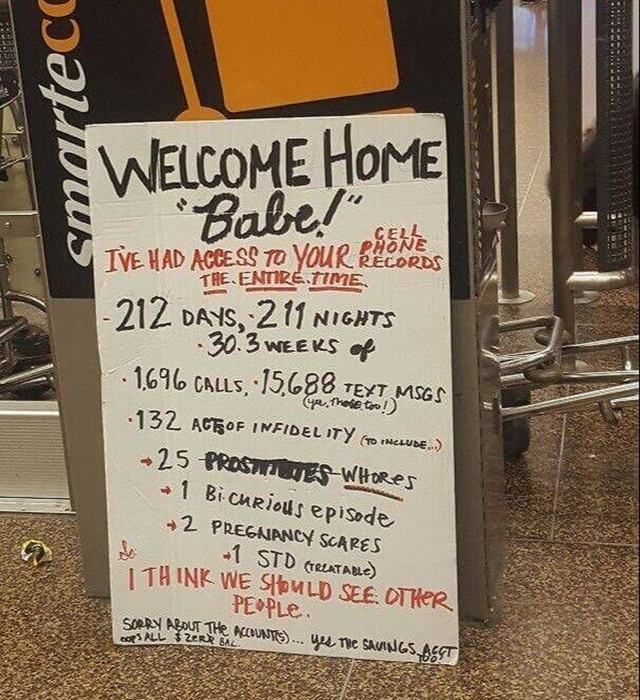 smarteca
WELCOME HOME
"Babe!"
I'VE HAD ACCESS TO YOUR CELL PHONE RECORDS
THE ENTIRE TIME
- 212 DAYS, · 211 NIGHTS
· 30.3 WEEKS of
· 1,696 CALLS, · 15,688 TEXT MSGS
(yes, those too!)
· 132 ACTS OF INFIDELITY (TO INCLUDE...)
→ 25 PROSTITUTES WHORES
→ 1 Bi curious episode
→ 2 PREGNANCY SCARES
→ 1 STD (TREATABLE)
So:
I THINK WE SHOULD SEE OTHER
PEOPLE.
SORRY ABOUT THE ACCOUNT(S)... yes THE SAVINGS ACCT TOO!
OOPS ALL $ ZERO BAL.